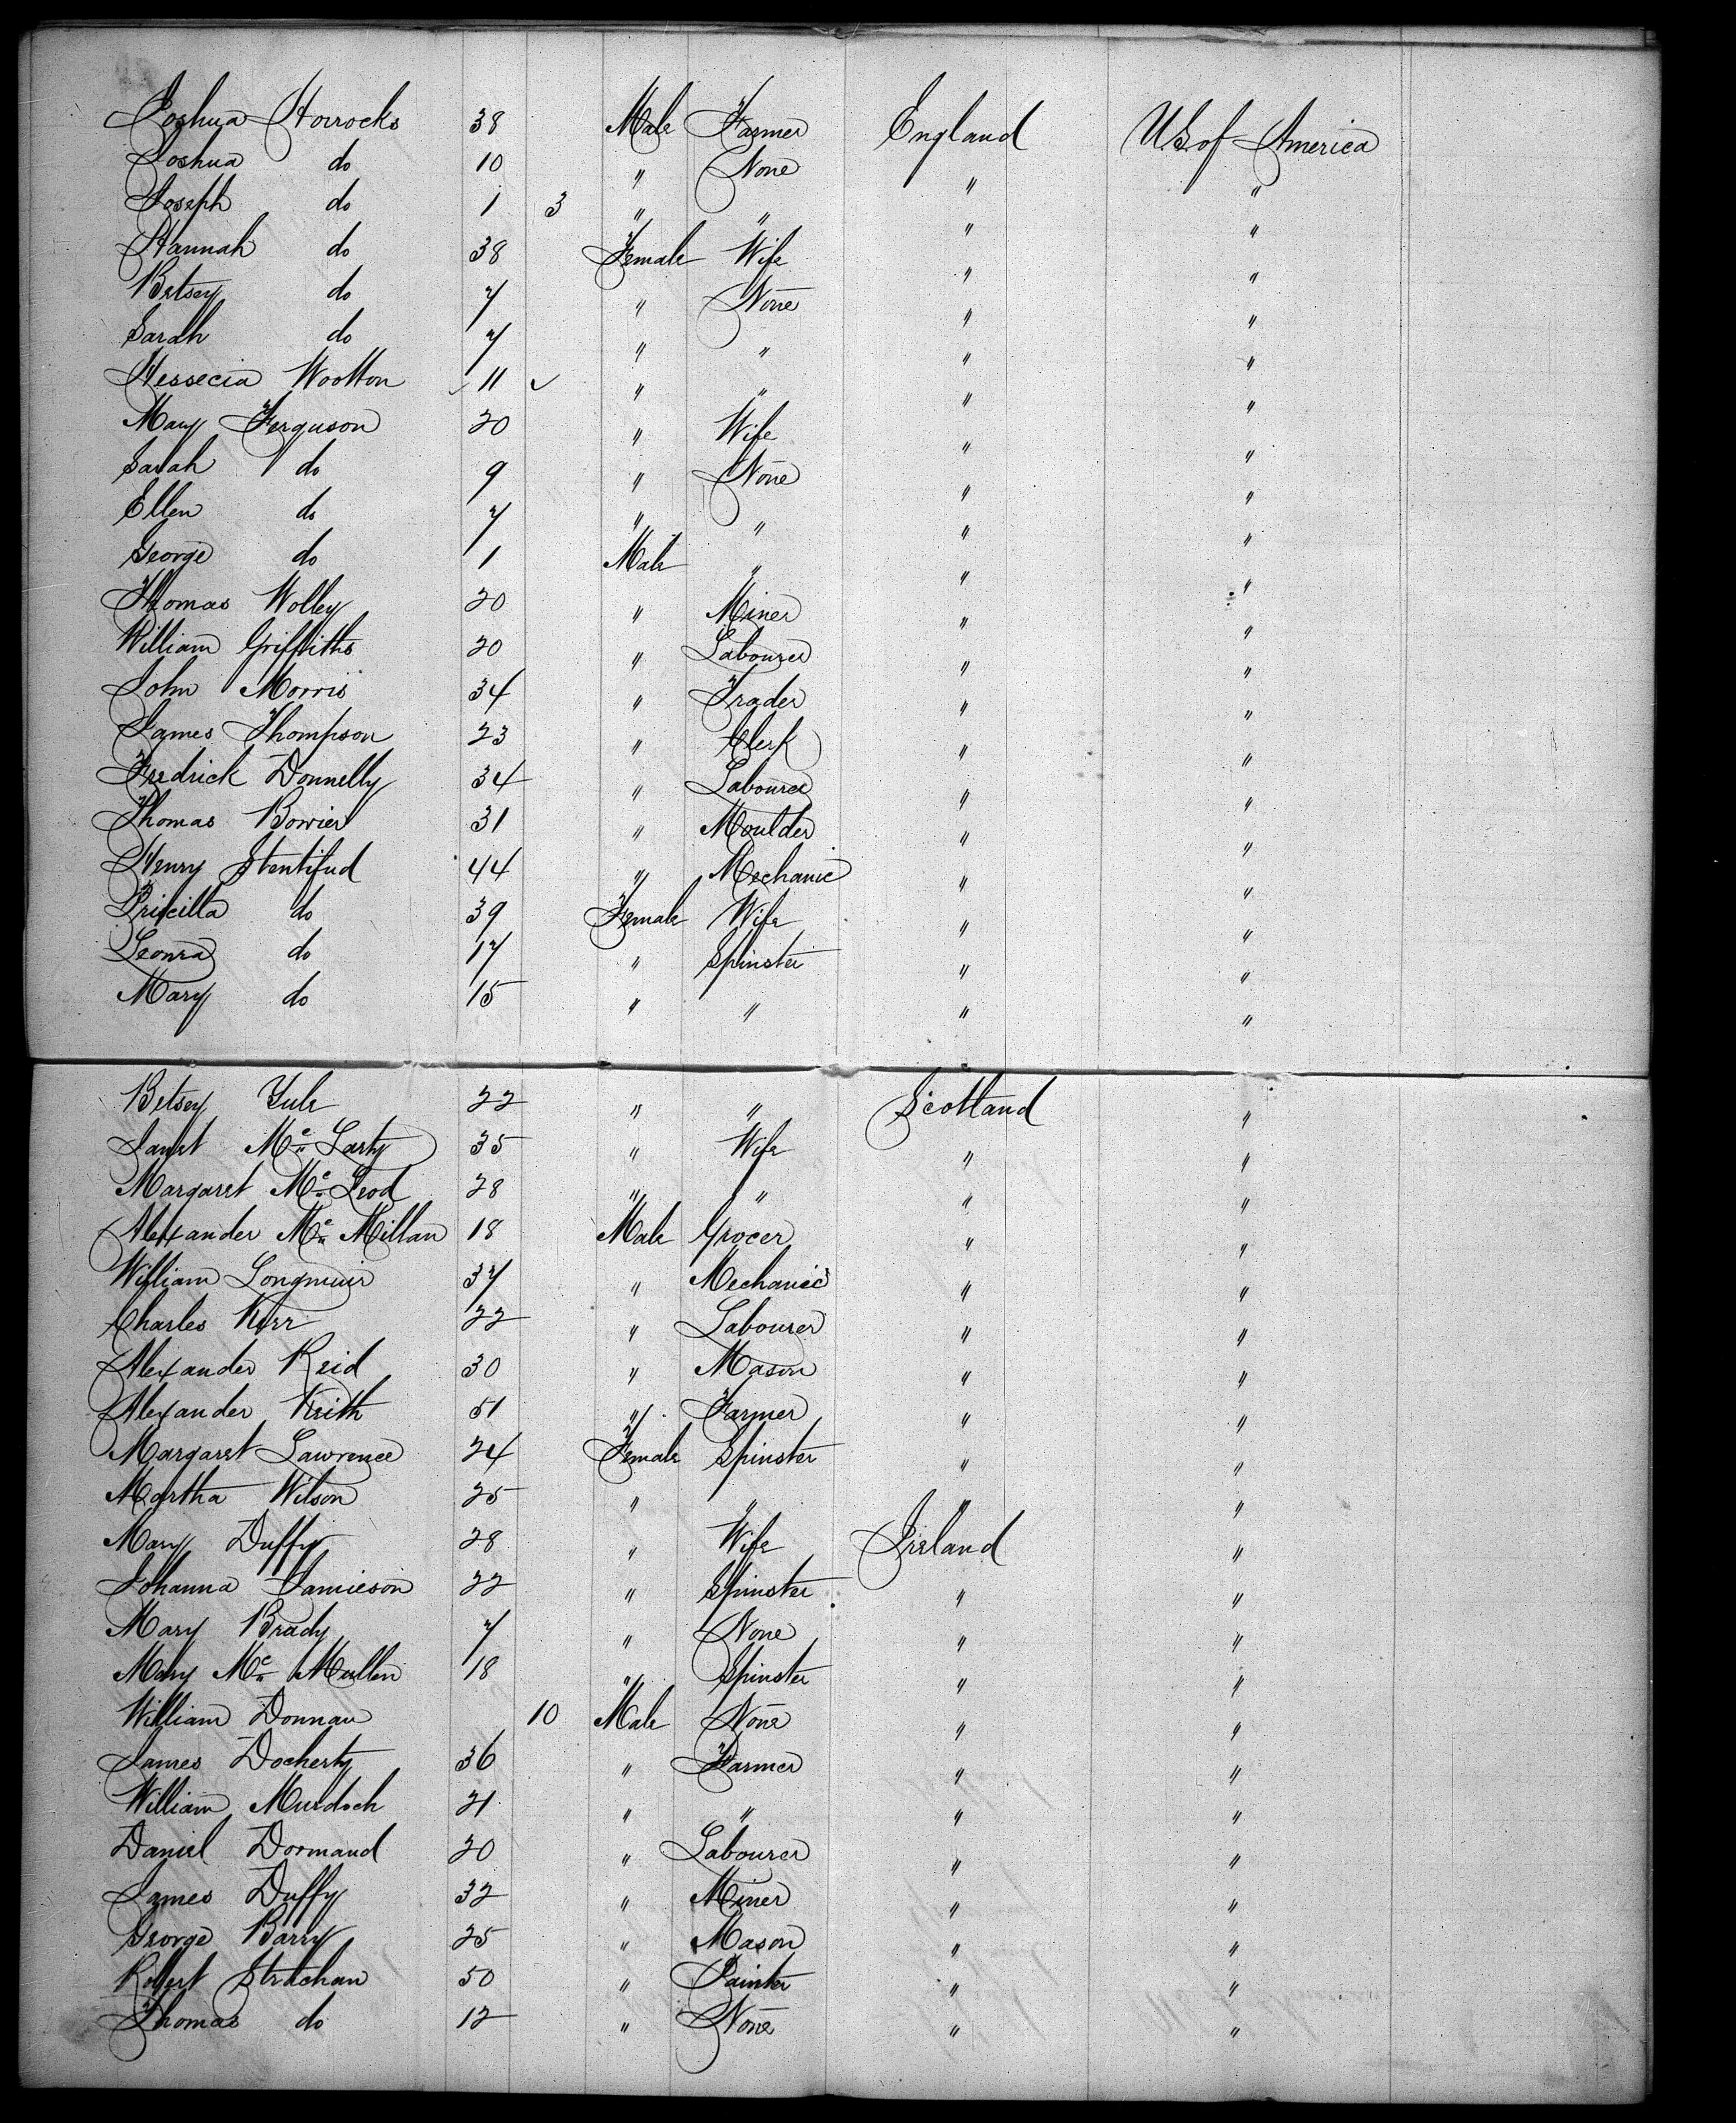 Joshua Horrocks 38 Male Farmer England U.S. of America
Joshua do 10 " None " "
Joseph do 1 3 " " " "
Hannah do 38 Female Wife " "
Betsey do 7 " None " "
Sarah do 7 " " " "
Hessecia Wootton 11 " " " "
Mary Ferguson 20 " Wife " "
Sarah do 9 " None " "
Ellen do 7 " " " "
George do 1 Male " " "
Thomas Wolley 20 " Miner " "
William Griffiths 20 " Labourer " "
John Morris 34 " Trader " "
James Thompson 23 " Clerk " "
Fredrick Donnelly 34 " Labourer " "
Thomas Borrier 31 " Moulder " "
Henry Stentifud 44 " Mechanic " "
Pricilla do 39 Female Wife " "
Leonra do 17 " Spinster " "
Mary do 15 " " " "
Betsey Yule 22 " " Scotland "
Janet Mc Larty 35 " Wife " "
Margaret Mc Leod 28 " " " "
Alexander Mc Millan 18 Male Grocer " "
William Longmuir 37 " Mechanic " "
Charles Kerr 22 " Labourer " "
Alexander Reid 30 " Mason " "
Alexander Keith 51 " Farmer " "
Margaret Lawrence 24 Female Spinster " "
Martha Wilson 25 " " " "
Mary Duffy 28 " Wife Ireland "
Johanna Jamieson 22 " Spinster " "
Mary Brady 7 " None " "
Mary Mc Mullen 18 " Spinster " "
William Donnan 10 Male None " "
James Docherty 36 " Farmer " "
William Murdoch 21 " " " "
Daniel Dormand 20 " Labourer " "
James Duffy 32 " Miner " "
George Barry 25 " Mason " "
Robert Strachan 50 " Painter " "
Thomas do 12 " None " "